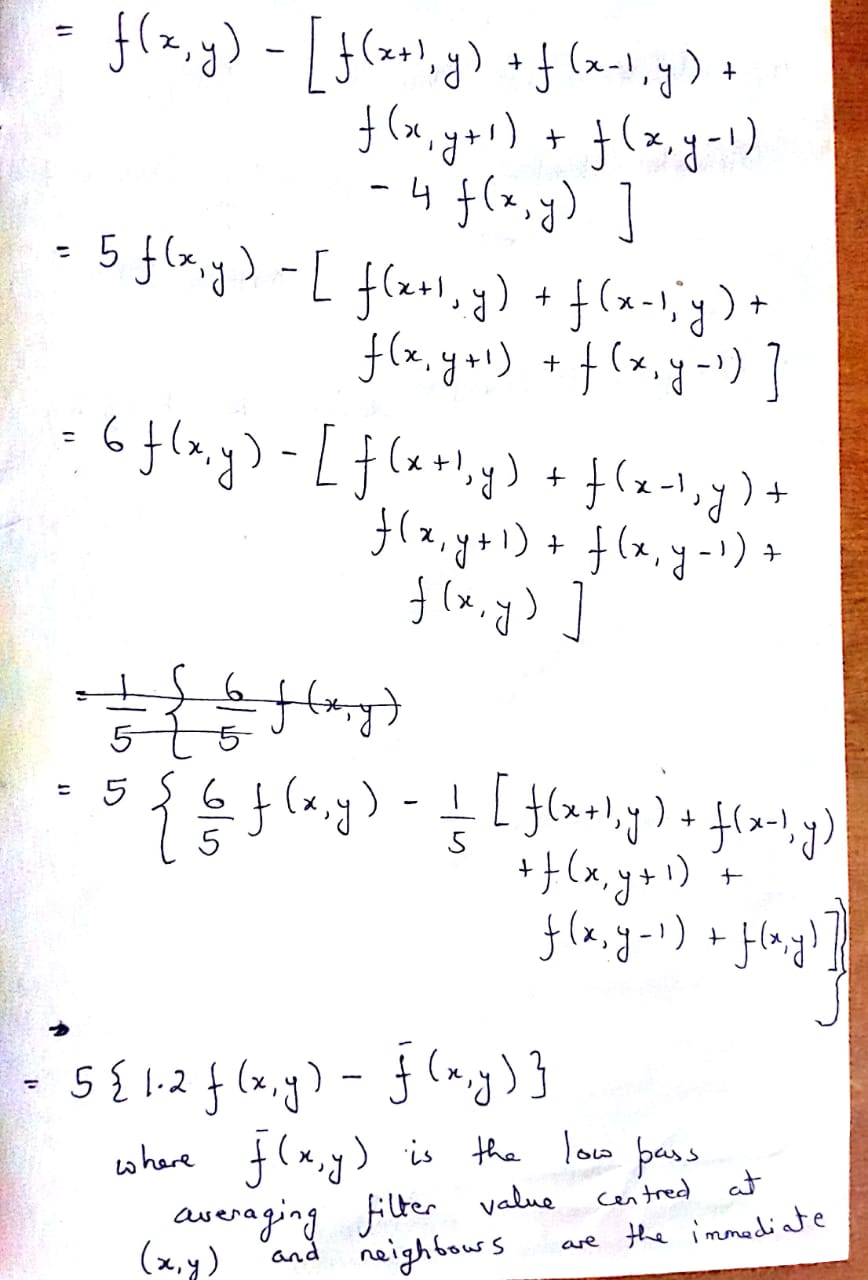 = f(x,y) - [f(x+1,y) + f(x-1,y) +
f(x,y+1) + f(x,y-1)
- 4 f(x,y) ]
= 5 f(x,y) - [ f(x+1,y) + f(x-1,y) +
f(x,y+1) + f(x,y-1) ]
= 6 f(x,y) - [ f(x+1,y) + f(x-1,y) +
f(x,y+1) + f(x,y-1) +
f(x,y) ]
= 1/5 { 6/5 f(x,y)
= 5 { 6/5 f(x,y) - 1/5 [ f(x+1,y) + f(x-1,y)
+ f(x,y+1) +
f(x,y-1) + f(x,y) ] }
= 5 { 1.2 f(x,y) - f̄(x,y) }
where f̄(x,y) is the low pass
averaging filter value centred at
(x,y) and neighbours are the immediate